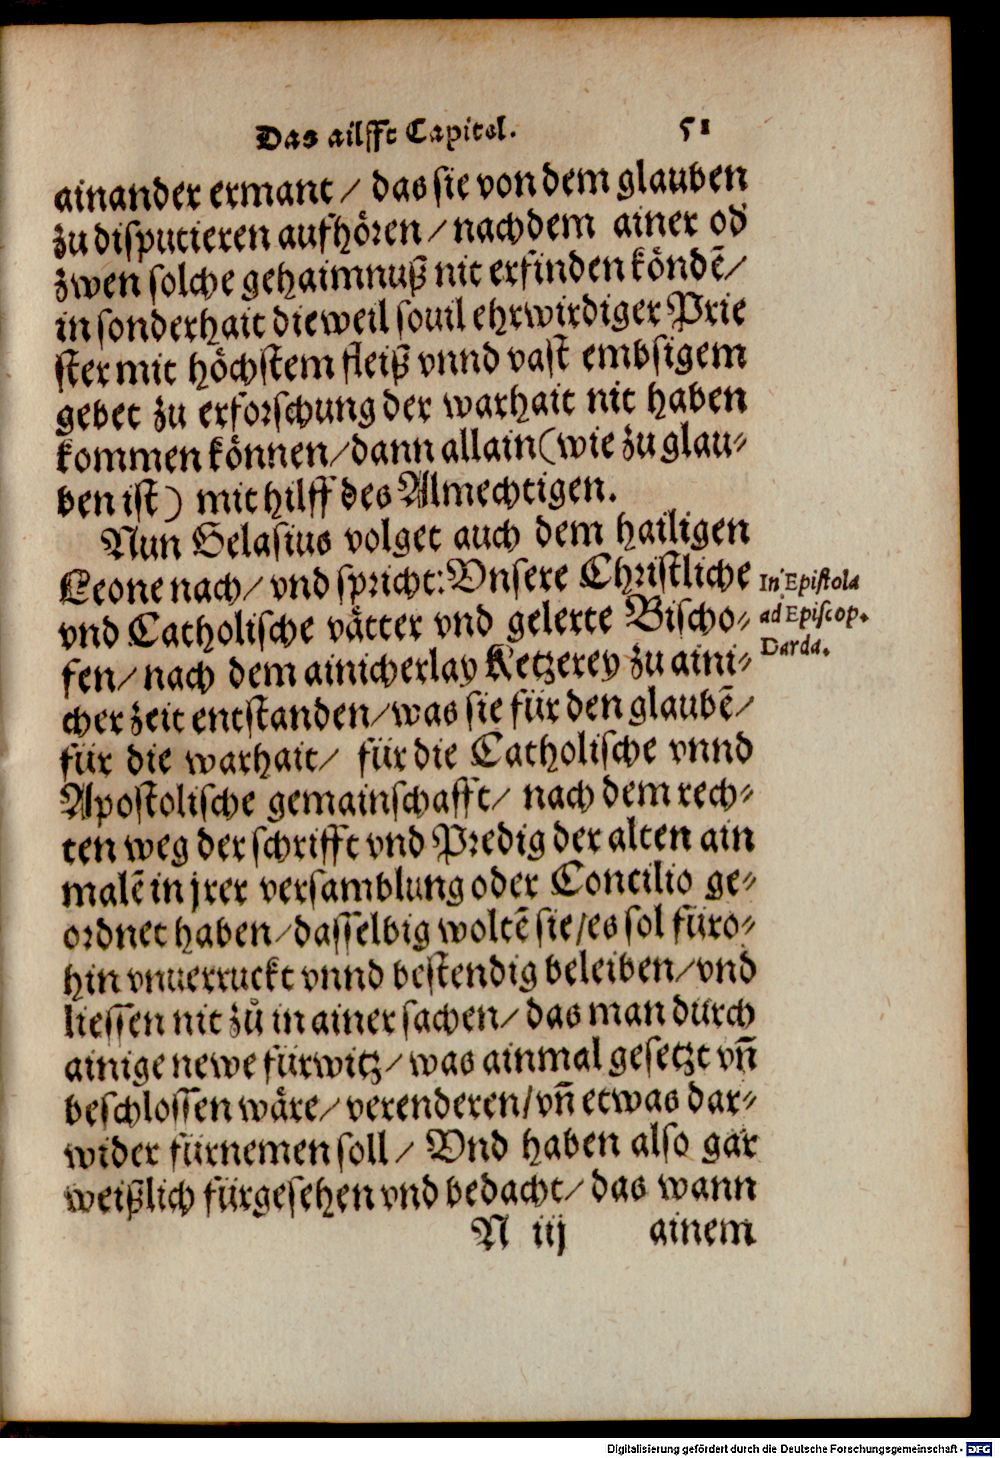 Das ailfft Capitel. 51
ainander ermant / das sie von dem glauben
zu disputieren aufhören / nachdem ainer od
zwen solche gehaimnuß nit erfinden köndẽ /
in sonderhait dieweil souil ehrwirdiger Prie
ster mit höchstem fleiß vnnd vast embsigem
gebet zu erforschung der warhait nit haben
kommen können / dann allain (wie zu glau⸗
ben ist) mit hilff des Almechtigen.
Nun Gelasius volget auch dem hailigen
Leone nach / vnd spricht: Vnsere Christliche
vnd Catholische vätter vnd gelerte Bischo⸗
fen / nach dem ainicherlay Ketzerey zu aini⸗
cher zeit entstanden / was sie für den glaubẽ /
für die warhait / für die Catholische vnnd
Apostolische gemainschafft / nach dem rech⸗
ten weg der schrifft vnd Predig der alten ain
malẽ in jrer versamblung oder Concilio ge⸗
ordnet haben / dasselbig woltẽ sie / es sol füro⸗
hin vnuerruckt vnnd bestendig beleiben / vnd
liessen nit zů in ainer sachen / das man durch
ainige newe fürwitz / was ainmal gesetzt vñ
beschlossen wäre / verenderen / vñ etwas dar⸗
wider fürnemen soll / Vnd haben also gar
weißlich fürgesehen vnd bedacht / das wann
N iij ainem
In Epistola
ad Episcop.
Darda.
Digitalisierung gefördert durch die Deutsche Forschungsgemeinschaft - DFG